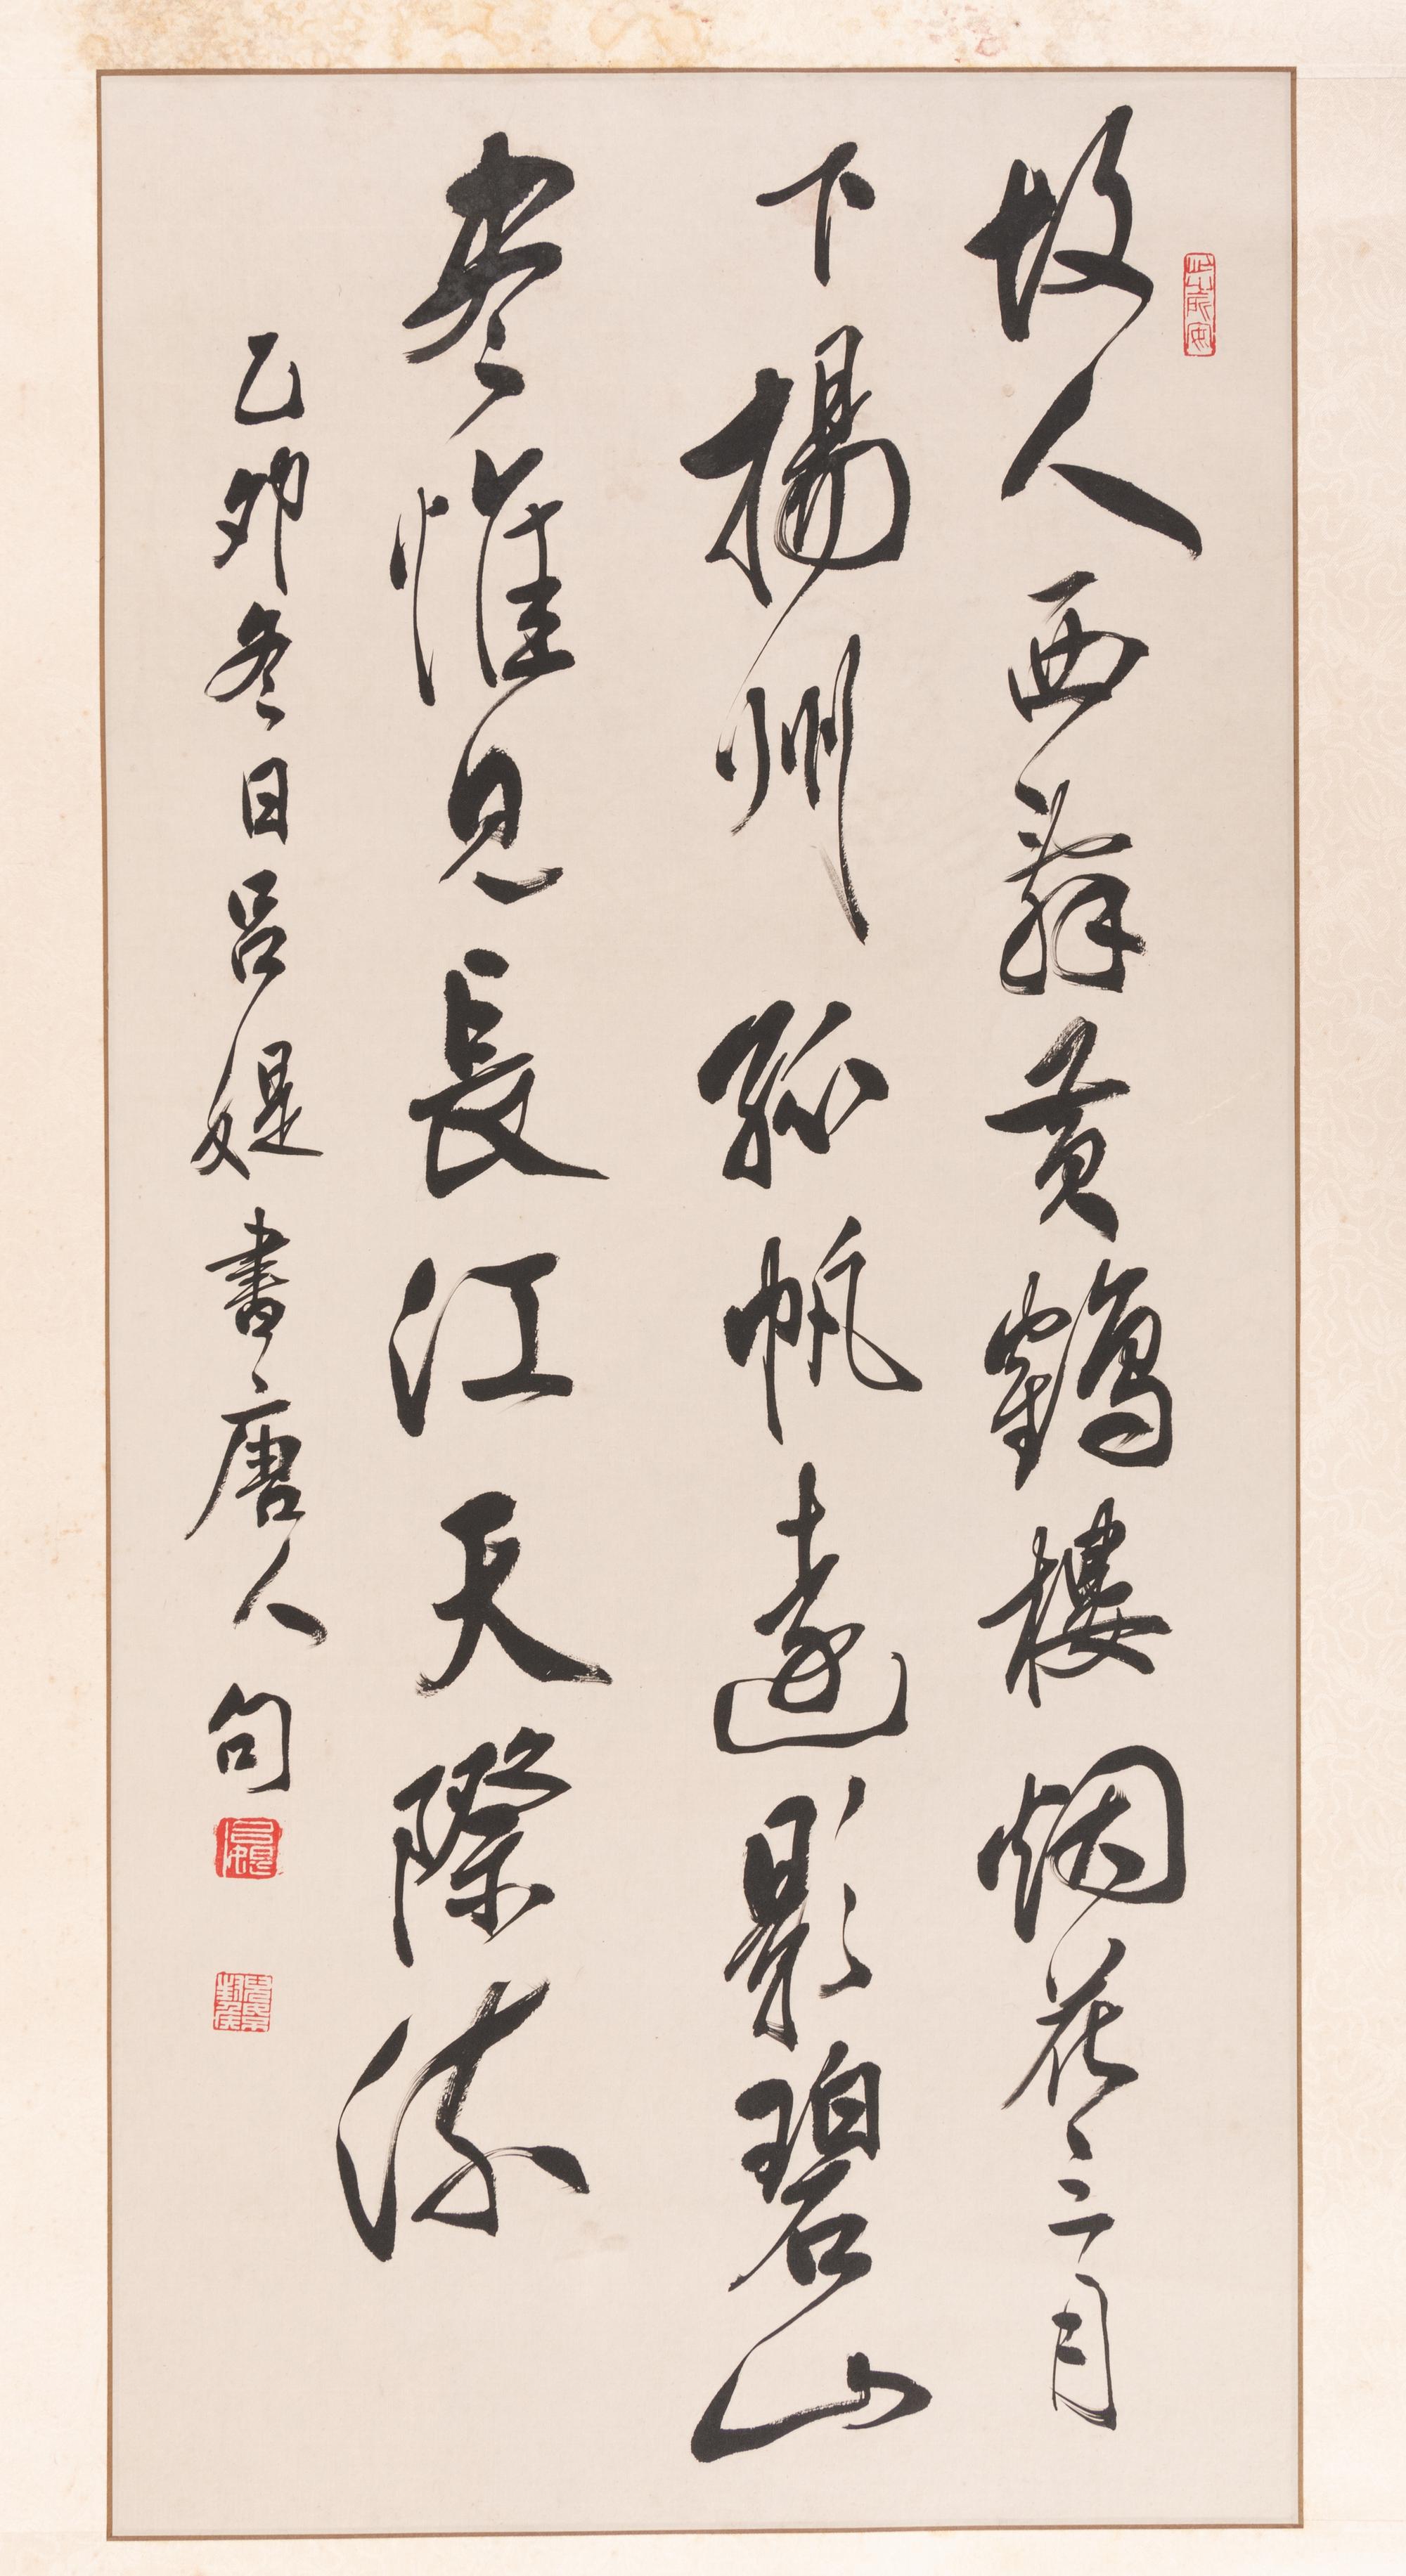 故人西辭黃鶴樓烟花三月
下揚州孤帆遠影碧山
尽惟見長江天際流
乙卯冬日呂媞書唐人句